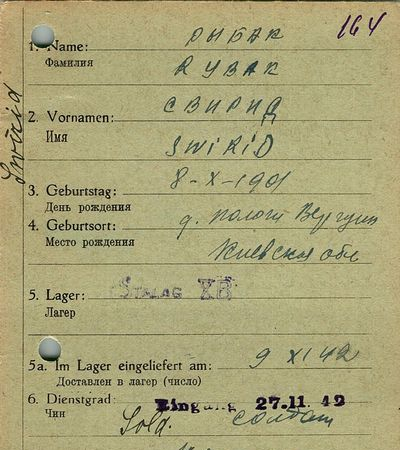 164
РЫБАК
1. Name:
Фамилия
RYBAK
СВИРИД
2. Vornamen:
Имя
SWIRID
Swirid
8-X-1901
3. Geburtstag:
День рождения
4. Geburtsort:
д. пологи Вергуны
Место рождения
Киевская обл
5. Lager: STALAG XB
Лагер
5a. Im Lager eingeliefert am: 9 XI 42
Доставлен в лагер (число)
6. Dienstgrad: Eingang 27.11.42
Чин
Sold. солдат